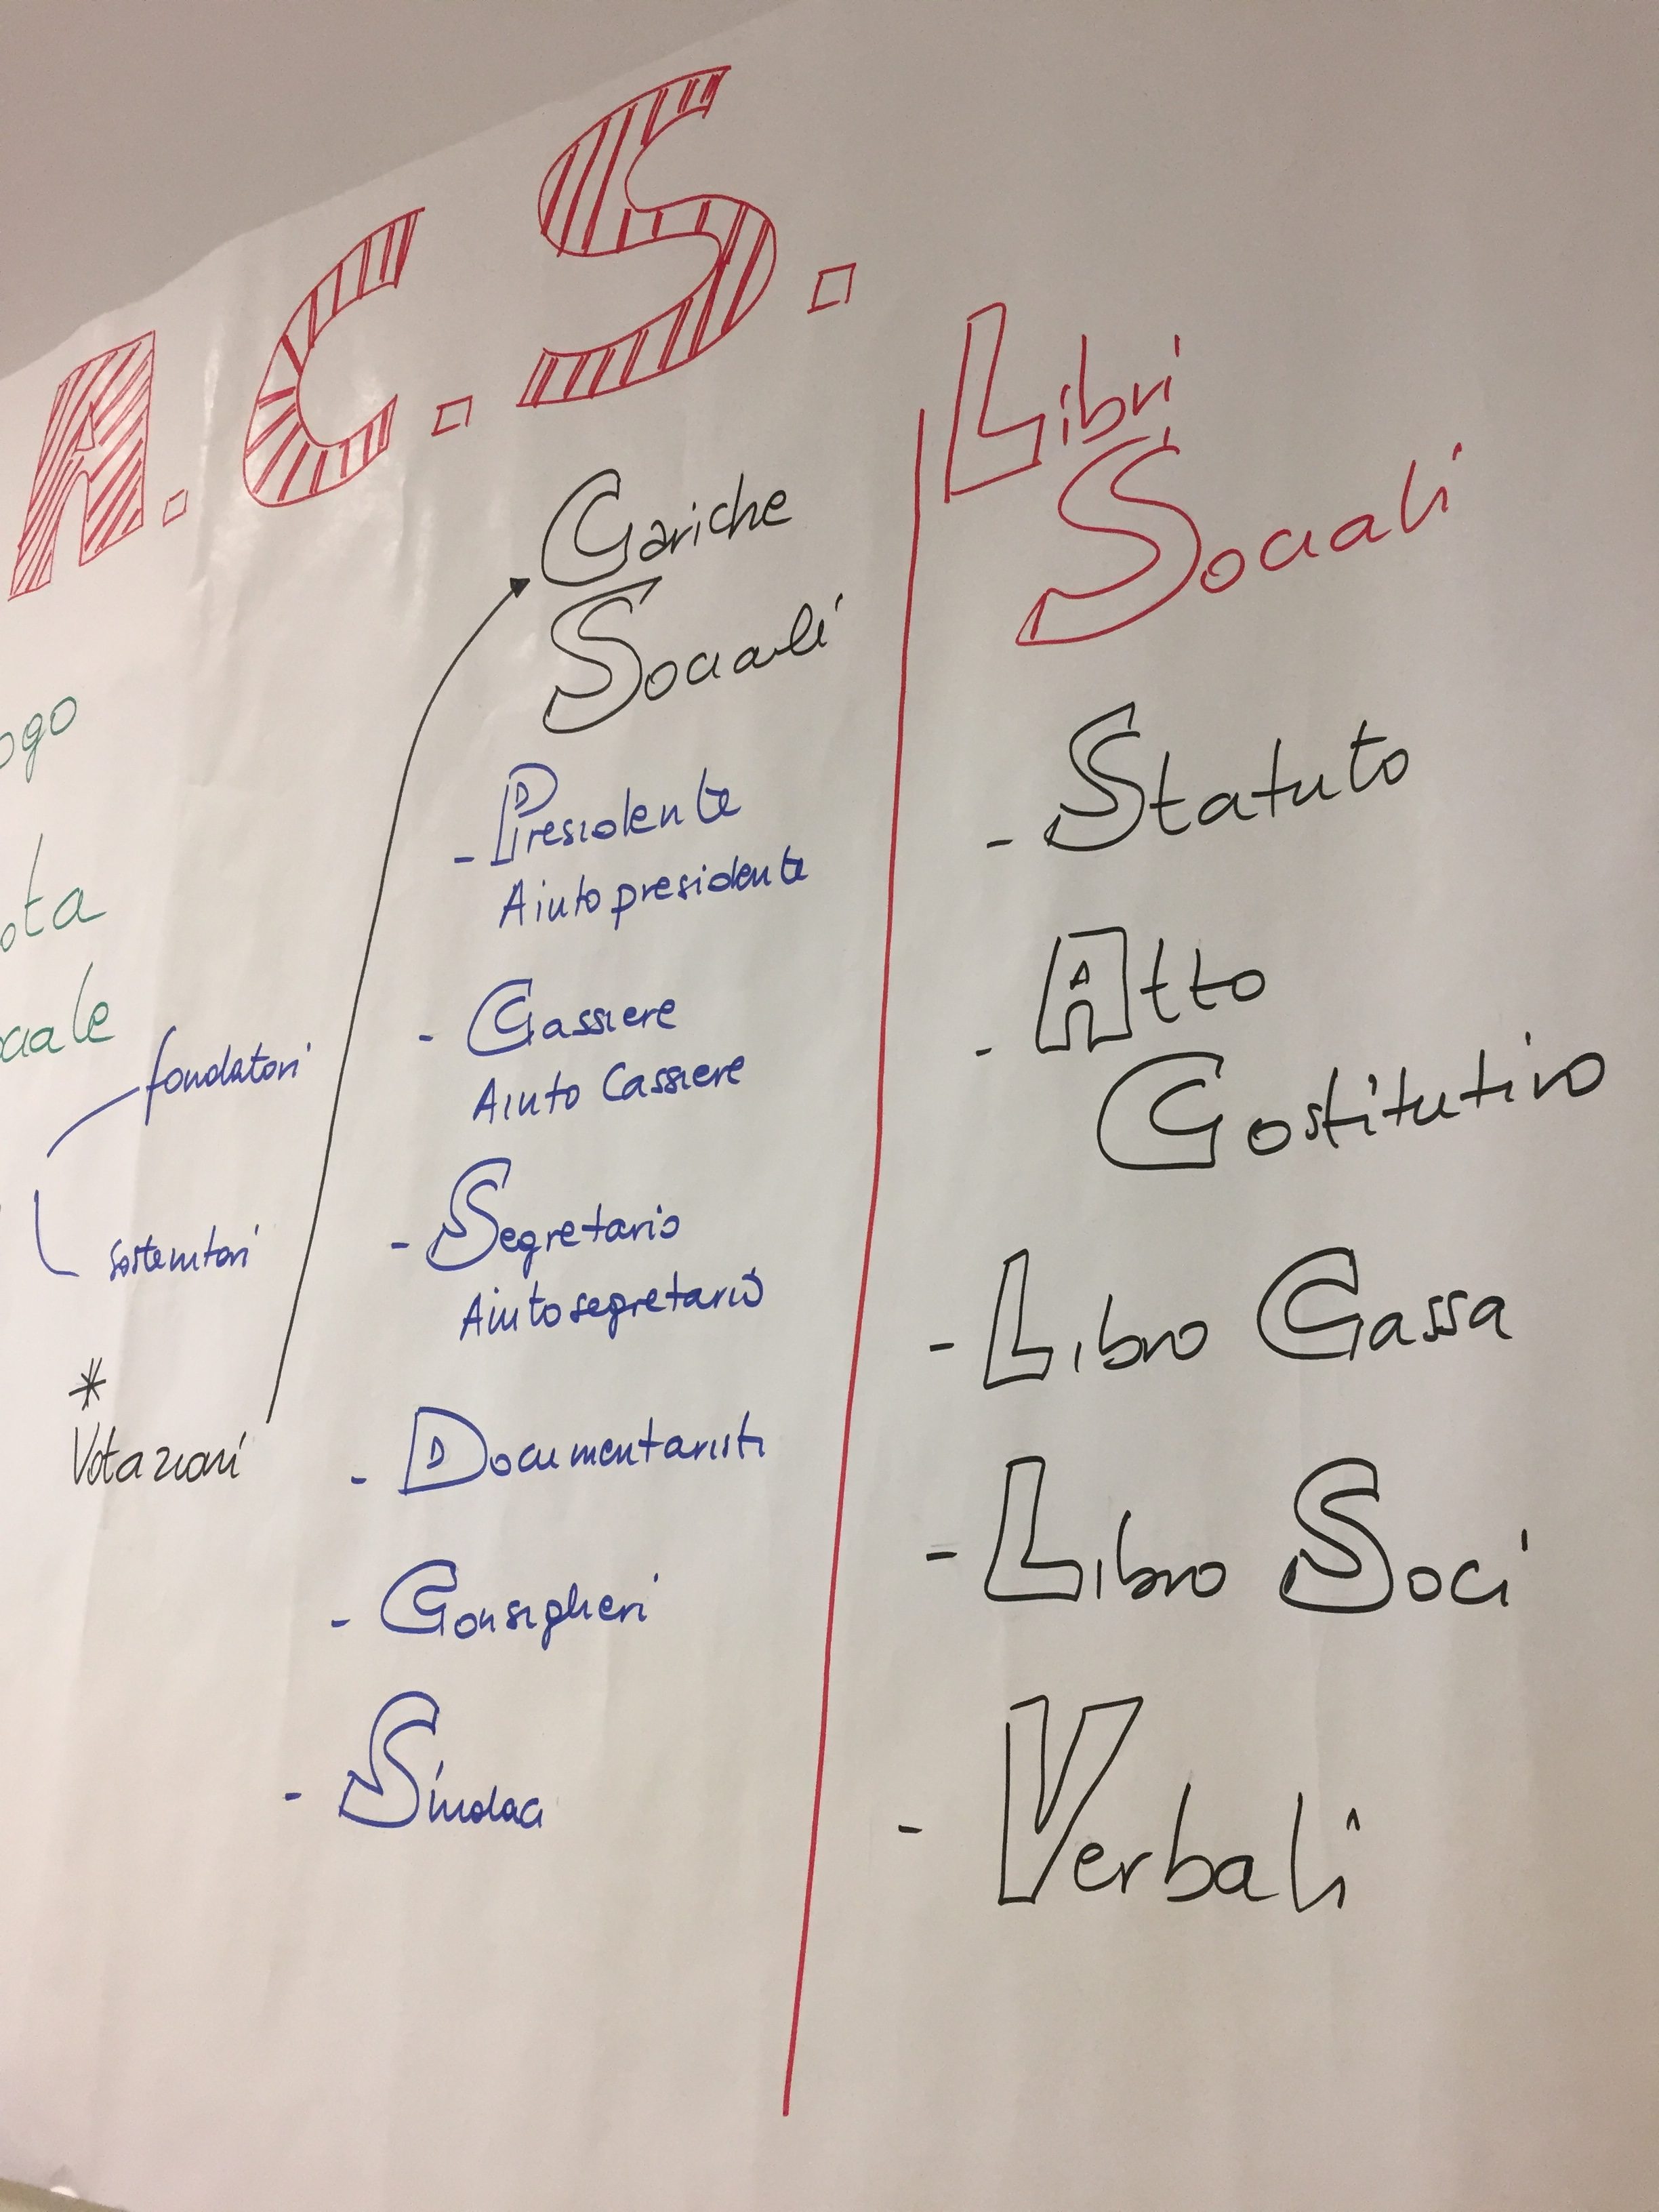 A.C.S.
ogo
ota
ciale
fondatori
sostenitori
*
Votazioni
Cariche
Sociali
- Presidente
Aiuto presidente
- Cassiere
Aiuto Cassiere
- Segretario
Aiuto segretario
- Documentaristi
- Consiglieri
- Sindaci
Libri
Sociali
- Statuto
- Atto
Costitutivo
- Libro Cassa
- Libro Soci
- Verbali